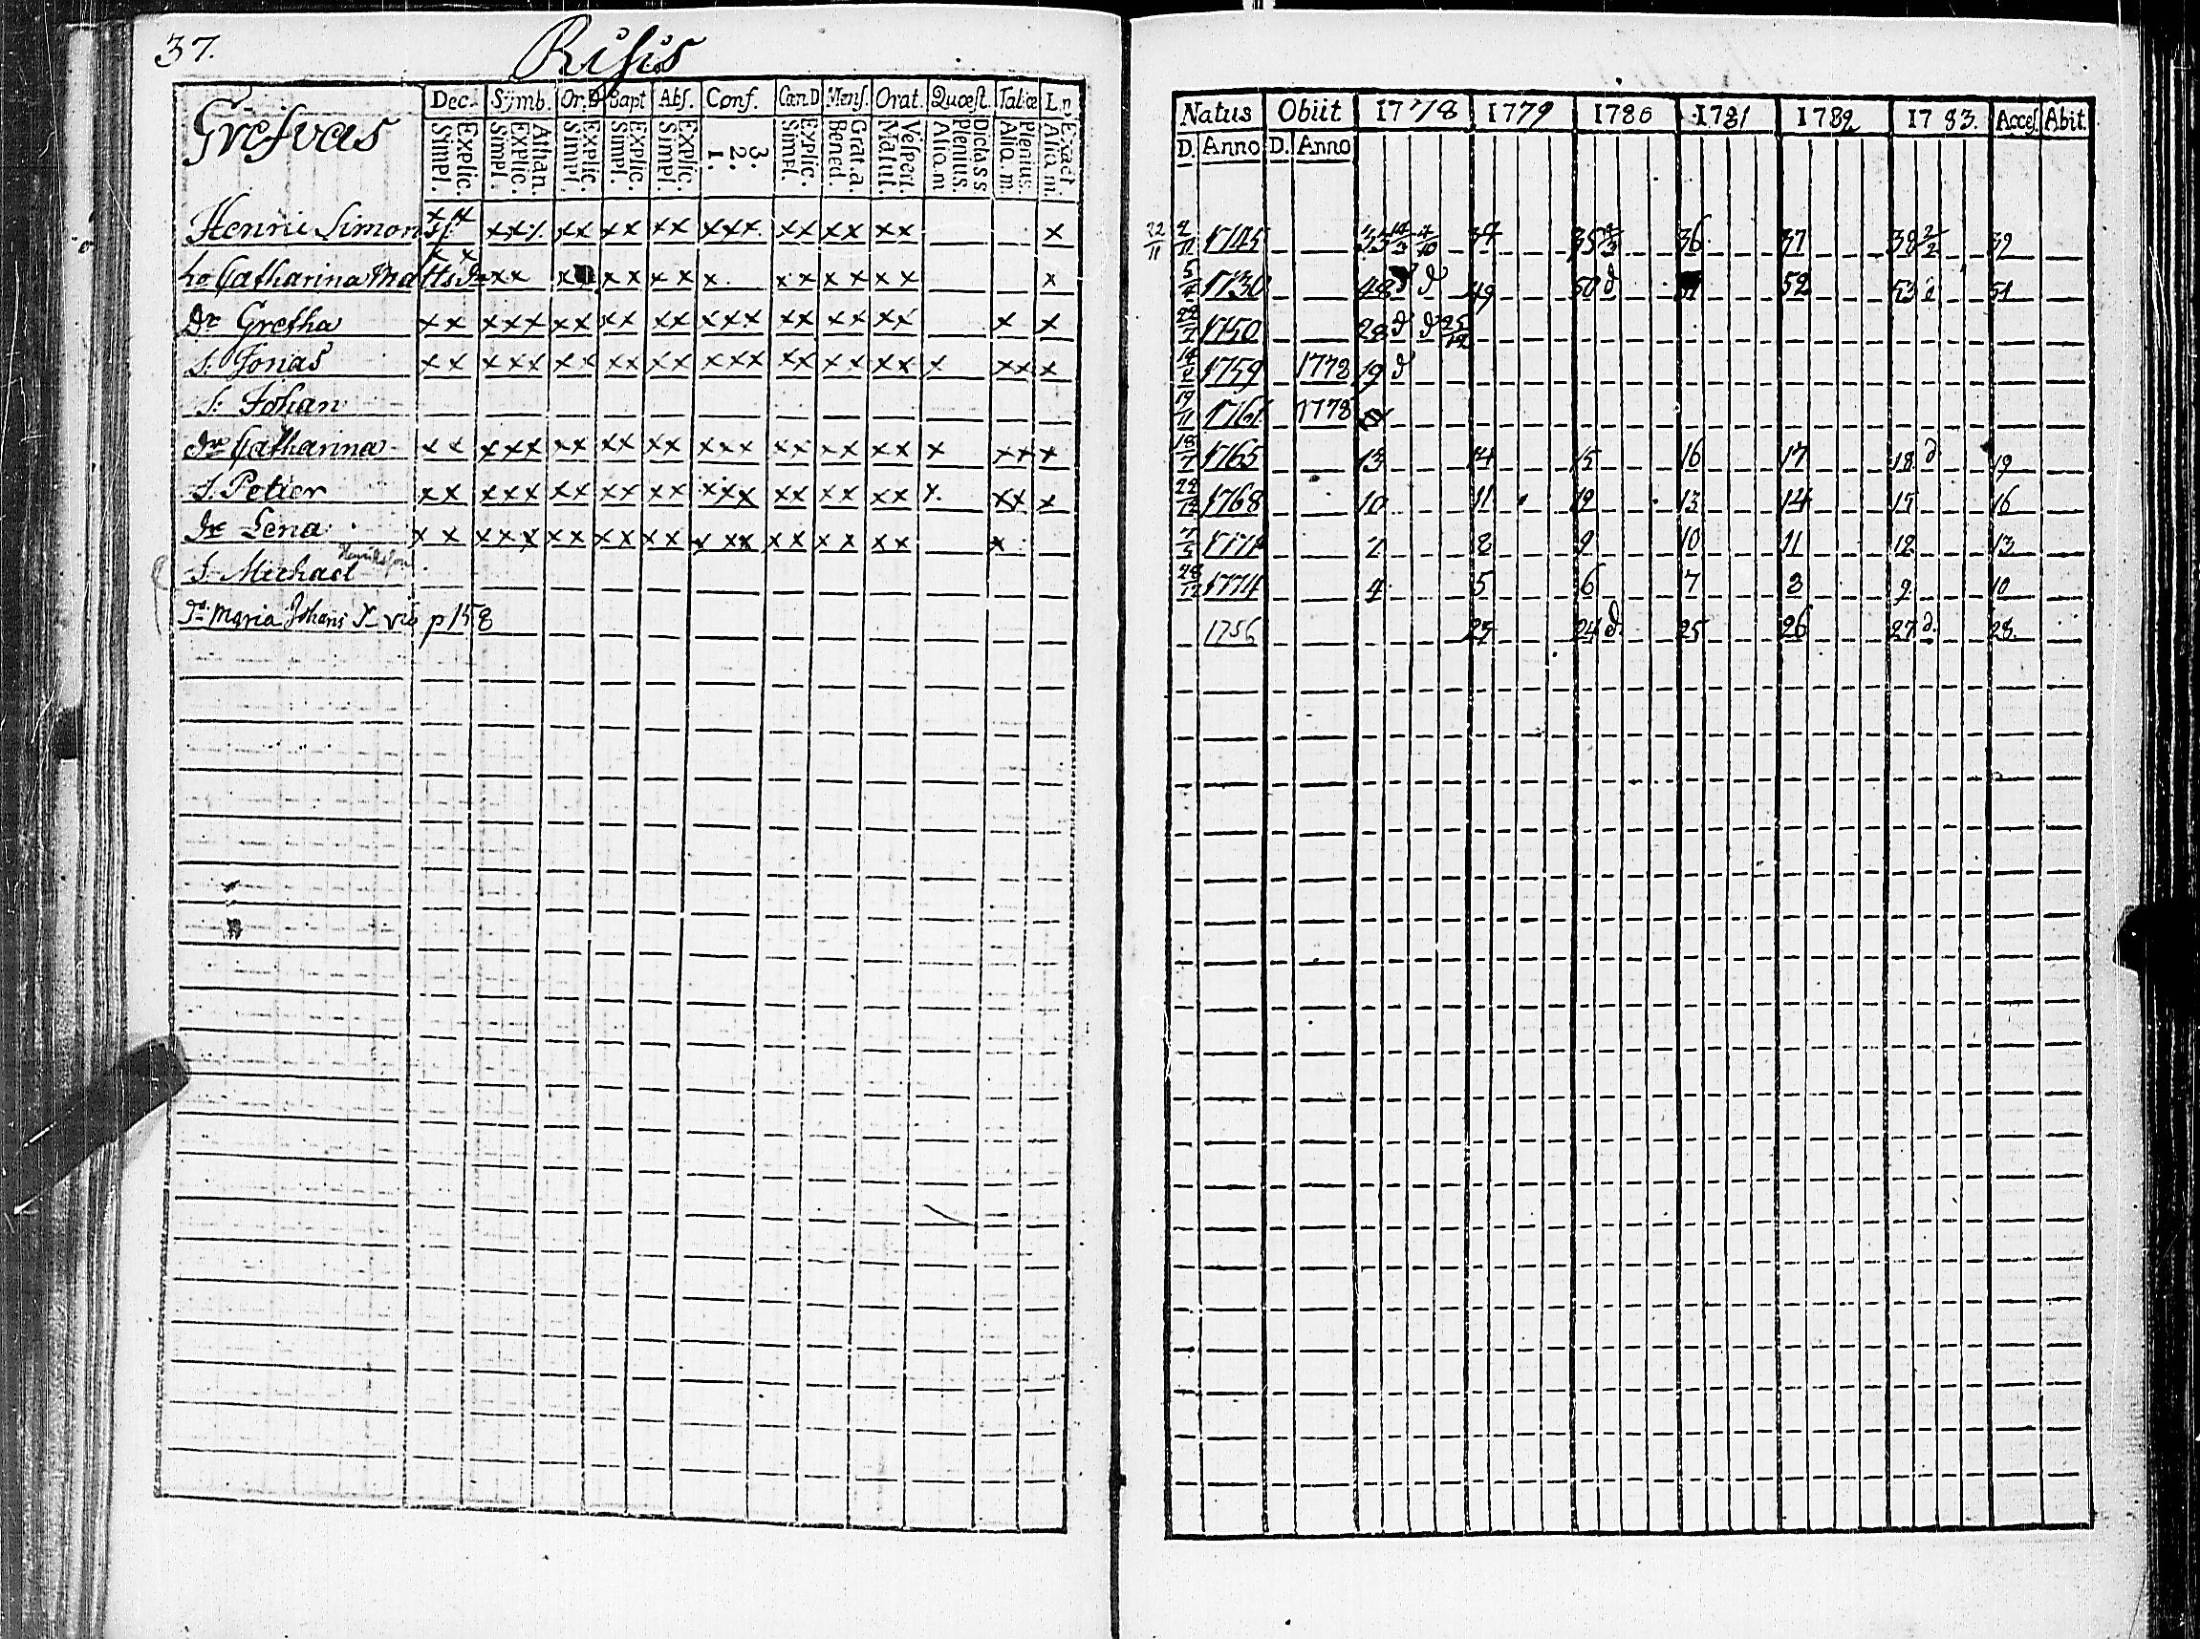 37. Risis
Grefvas
Dec. Symb. Or.D Bapt Abs. Conf. Cœn D Mens. Orat. Quœst. Tabiœ L.n
Explic. Simpl. Athan. Explic. Simpl. Explic. Simpl. Explic. Simpl. Explic. Simpl. 3. 2. 1. Explic. Simpl. Grat.a. Bened. Vespert. Matut. D:class. Plenius. Aliq.m Plenius. Aliq.m. Exact Aliq m.
Natus Obiit 1778 1779 1780 1781 1782 1783. Acces. Abit.
D. Anno D. Anno
Henric Simons x x x x x x x x x x x x x x x x x x x x x 22/11 2/11 1745 14/3 4/10 34 35 36 37 38 2/2 39
ho Catharina Matts Dr x x x x x x x x x x x x x x x 1730 48 d d 49 50 d 52 53 d 54
Dr Gretha x x x x x x x x x x x x x x x x x x x x x x 1750 28 d d 25/12
S. Jonas x x x x x x x x x x x x x x x x x x x x x x x x 1759 1778 19 d
S. Johan 19/11 1761 1778
dr Catharina x x x x x x x x x x x x x x x x x x x x x x x x 18/7 1765 13 14 15 16 17 18 d 19
S. Petter x x x x x x x x x x x x x x x x x x x x x x x x 22/12 1768 10 11 12 13 14 15 16
dr Lena x x x x x x x x x x x x x x x x x x x x x 7/5 1771 7 8 9 10 11 12 13
S. Michael Henriksson 28/12 1774 4 5 6 7 8 9 10
Maria Johans Dr vid p 158 1756 23 24 d. 25 26 27 d. 28.